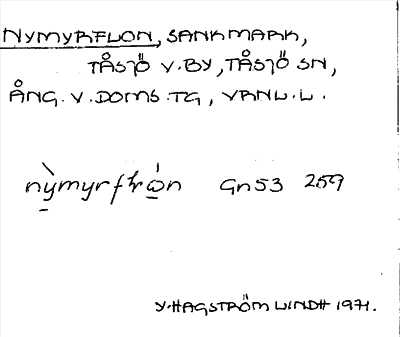 NYMYRFLON, SANKMARK,
TÅSJÖ V. BY, TÅSJÖ SN,
ÅNG. V. DOMS. TG, VRNL. L.
nỳmyrfrón Gn53 259
Y. HAGSTRÖM LINDH 1971.